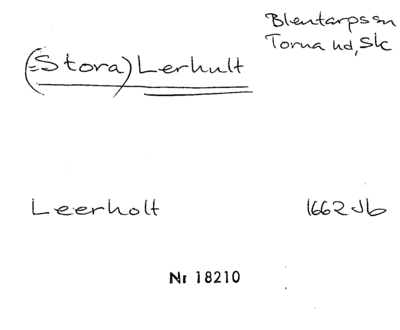 Blentarps sn
Torna hd, Sk
(=Stora) Lerhult
Leerholt 1662 Jb
Nr 18210